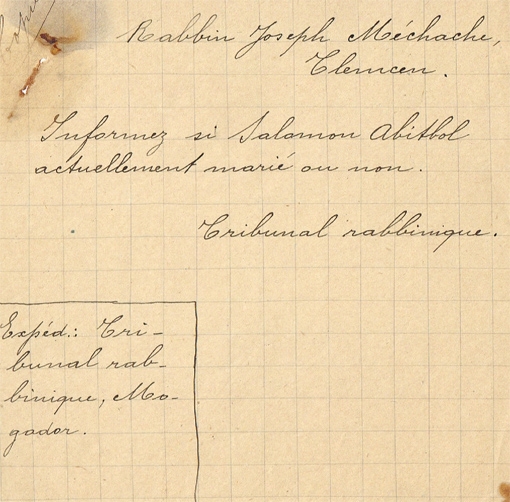 Copie
Rabbin Joseph Méchache,
Tlemcen.
Informez si Salomon Abitbol
actuellement marié ou non.
Tribunal rabbinique.
Expéd.: Tri-
bunal rab-
binique, Mo-
gador.